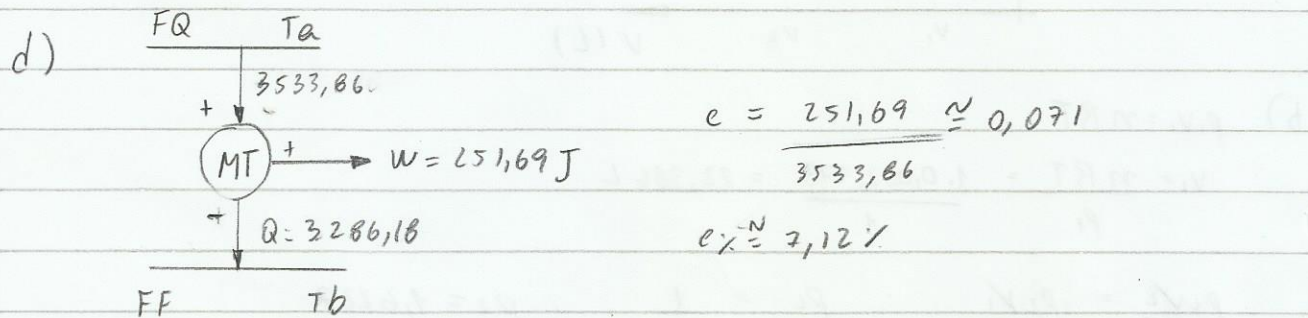 d)
FQ Ta
3533,86
+
MT + W = 251,69 J
+
Q = 3286,18
FF Tb
e = 251,69 / 3533,86 ≅ 0,071
e% ≅ 7,12 %